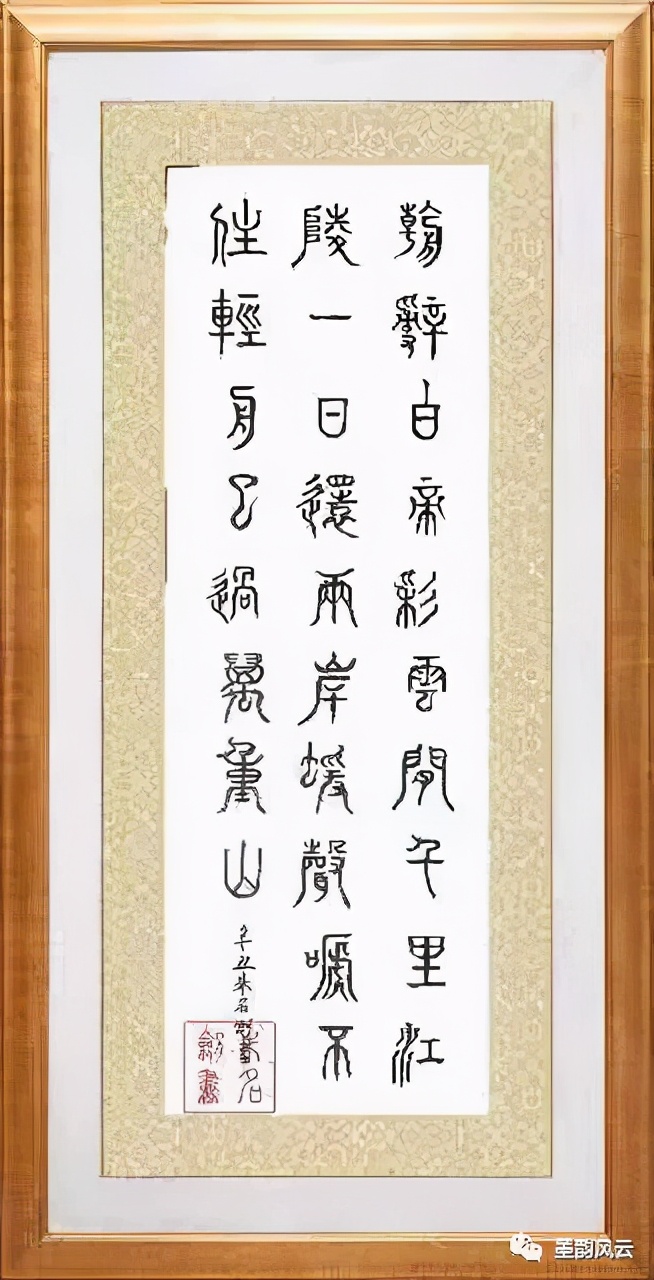 朝辭白帝彩雲間千里江
陵一日還兩岸蝯聲嗁不
住輕舟已過萬重山
辛丑朱名
墨韵风云